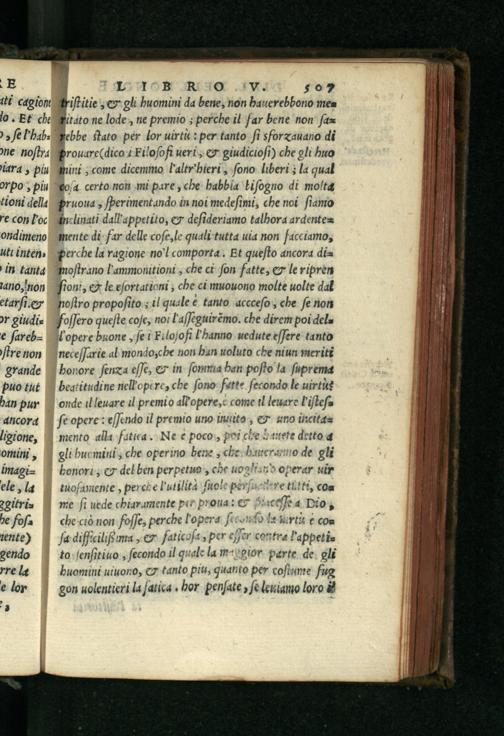 RE
ati cagione
do. Et che
o, se l'hab=
one nostra
piara, piu
corpo, piu
tioni della
re con l'oc
ondimeno
uti inten=
o in tanta
nano, non
etarsi. &
or giudi=
e sareb=
ostre non
grande
puo tut
han pur
ancora
ligione,
omini,
imagi=
dele, la
ggitri=
he fos=
mente)
gendo
rre la
le lor
LIBRO V. 507
tristitie, & gli huomini da bene, non hauerebbono me=
ritato ne lode, ne premio; perche il far bene non sa=
rebbe stato per lor uirtù: per tanto si sforzauano di
prouare (dico i Filosofi ueri, & giudiciosi) che gli huo
mini, come dicemmo l'altr'hieri, sono liberi; la qual
cosa certo non mi pare, che habbia bisogno di molta
pruoua, sperimentando in noi medesimi, che noi siamo
inclinati dall'appetito, & desideriamo talhora ardente=
mente di far delle cose, le quali tutta uia non facciamo,
perche la ragione no'l comporta. Et questo ancora di=
mostrano l'ammonitioni, che ci son fatte, & le ripren
sioni, & le esortationi, che ci muouono molte uolte dal
nostro proposito; il quale è tanto acceso, che se non
fossero queste cose, noi l'asseguirēmo. che direm poi del=
l'opere buone, se i Filosofi l'hanno uedute essere tanto
necessarie al mondo, che non han uoluto che niun meriti
honore senza esse, & in somma han posto la suprema
beatitudine nell'opere, che sono fatte secondo le uirtù:
onde il leuare il premio all'opere, è come il leuare l'istes=
se opere: essendo il premio uno inuito, & uno incita=
mento alla fatica. Ne è poco, poi che hauete detto a
gli huomini, che operino bene, che haueranno de gli
honori, & del ben perpetuo, che uogliano operar uir
tuosamente, perche l'utilità suole persuadere tutti, co=
me si uede chiaramente per proua: & piacesse a Dio,
che ciò non fosse, perche l'opera secondo la uirtù è co=
sa difficilissima, & faticosa, per esser contra l'appeti=
to sensitiuo, secondo il quale la maggior parte de gli
huomini uiuono, & tanto piu, quanto per costume fug
gon uolentieri la fatica. hor pensate, se leuiamo loro il